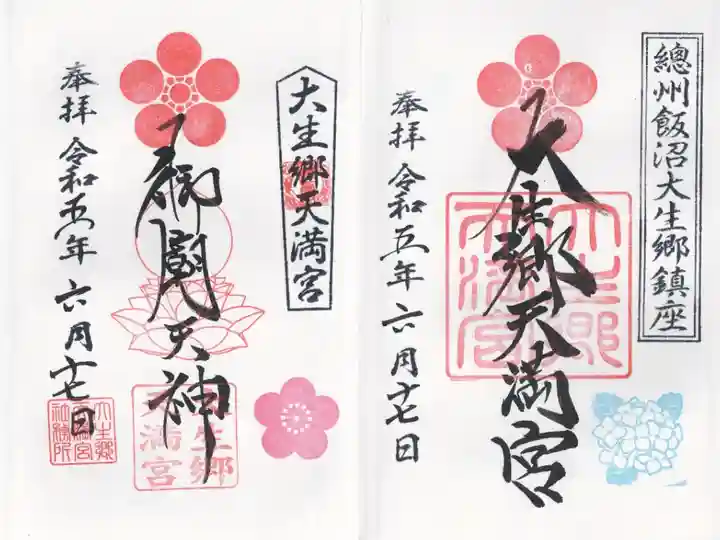 總州飯沼大生郷鎮座
大生郷天満宮
奉拝 令和五年 六月十七日
大生郷天満宮
大生郷天満宮
御廟天神
大生郷天満宮
奉拝 令和五年 六月十七日
大生郷天満宮社務所